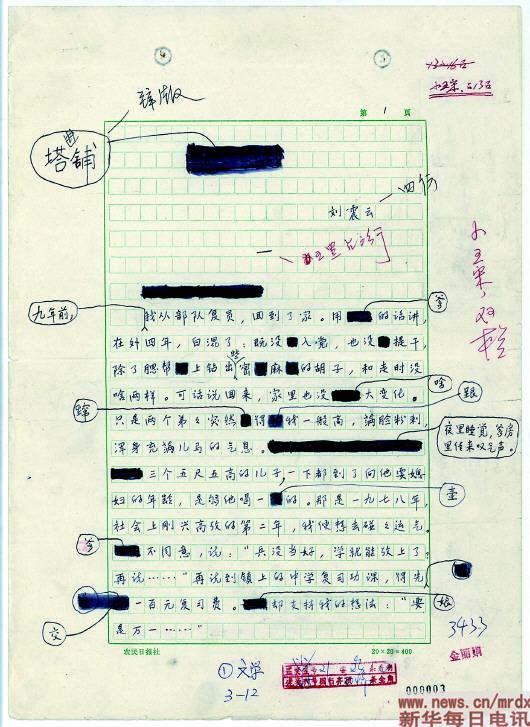 辞版
第 1 頁
塔铺
刘震云
四行
一
小五宋,双栏
九年前,
我从部队复员,回到了家。用 爹 的话讲,
在外四年,白混了:既没入党,也没提干,
除了腮帮上钻出些密麻的胡子,和走时没
啥两样。可话说回来,家里也没 啥 大变化。
只是两个弟弟突然 蹿 得 跟 我一般高,满脸粉刺
浑身充满儿马的气息。
夜里睡觉,爹房
里传来叹气声。
三个五尺五高的儿子,一下都到了向他要媳
妇的年龄,是够他喝一 壶 的。那是一九七八年,
社会上刚兴高考的第二年,我便想去碰碰运气。
爹 不同意,说:“兵没当好,学就能考上了?
再说……”再说到镇上的中学复习功课,得先
交 一百元复习费。 娘 却支持我的想法:“要
是万一……”
农民日报社
20×20=400
3433
①文学
3-12
000003
www.news.cn/mrdx
新华每日电讯